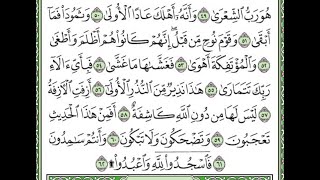 هُوَ رَبُّ الشِّعْرَىٰ ٤٩ وَأَنَّهُ أَهْلَكَ عَادًا الْأُولَىٰ ٥٠ وَثَمُودَ فَمَا
أَبْقَىٰ ٥١ وَقَوْمَ نُوحٍ مِنْ قَبْلُ إِنَّهُمْ كَانُوا هُمْ أَظْلَمَ وَأَطْغَىٰ
٥٢ وَالْمُؤْتَفِكَةَ أَهْوَىٰ ٥٣ فَغَشَّىٰهَا مَا غَشَّىٰ ٥٤ فَبِأَيِّ آلَاءِ
رَبِّكَ تَتَمَارَىٰ ٥٥ هَٰذَا نَذِيرٌ مِنَ النُّذُرِ الْأُولَىٰ ٥٦ أَزِفَتِ الْآزِفَةُ
٥٧ لَيْسَ لَهَا مِنْ دُونِ اللَّهِ كَاشِفَةٌ ٥٨ أَفَمِنْ هَٰذَا الْحَدِيثِ
تَعْجَبُونَ ٥٩ وَتَضْحَكُونَ وَلَا تَبْكُونَ ٦٠ وَأَنْتُمْ سَامِدُونَ
٦١ فَاسْجُدُوا لِلَّهِ وَاعْبُدُوا ٦٢